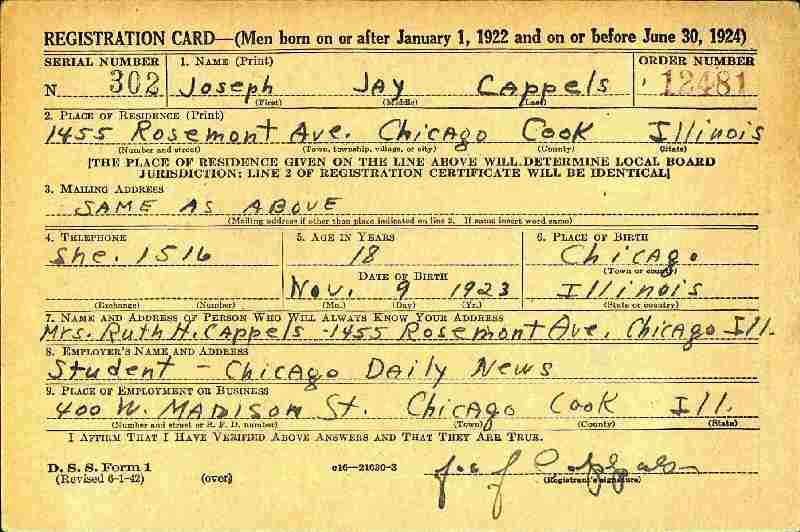 REGISTRATION CARD—(Men born on or after January 1, 1922 and on or before June 30, 1924)
SERIAL NUMBER 1. NAME (Print) ORDER NUMBER
N 302 Joseph JAY CAppels 12481
(First) (Middle) (Last)
2. PLACE OF RESIDENCE (Print)
1455 Rosemont Ave. Chicago Cook Illinois
(Number and street) (Town, township, village, or city) (County) (State)
[THE PLACE OF RESIDENCE GIVEN ON THE LINE ABOVE WILL DETERMINE LOCAL BOARD
JURISDICTION; LINE 2 OF REGISTRATION CERTIFICATE WILL BE IDENTICAL]
3. MAILING ADDRESS
SAME AS ABOVE
(Mailing address if other than place indicated on line 2. If same insert word same)
4. TELEPHONE 5. AGE IN YEARS 6. PLACE OF BIRTH
She. 1516 18 Chicago
(Town or county)
DATE OF BIRTH
Nov. 9 1923 Illinois
(Exchange) (Number) (Mo.) (Day) (Yr.) (State or country)
7. NAME AND ADDRESS OF PERSON WHO WILL ALWAYS KNOW YOUR ADDRESS
Mrs. Ruth H. CAppels -1455 Rosemont Ave. Chicago Ill.
8. EMPLOYER'S NAME AND ADDRESS
Student - Chicago Daily News
9. PLACE OF EMPLOYMENT OR BUSINESS
400 W. MADISON St. Chicago Cook Ill.
(Number and street or R. F. D. number) (Town) (County) (State)
I AFFIRM THAT I HAVE VERIFIED ABOVE ANSWERS AND THAT THEY ARE TRUE.
D. S. S. Form 1 c16—21630-3 Joe J Cappels
(Revised 6-1-42) (over) (Registrant's signature)